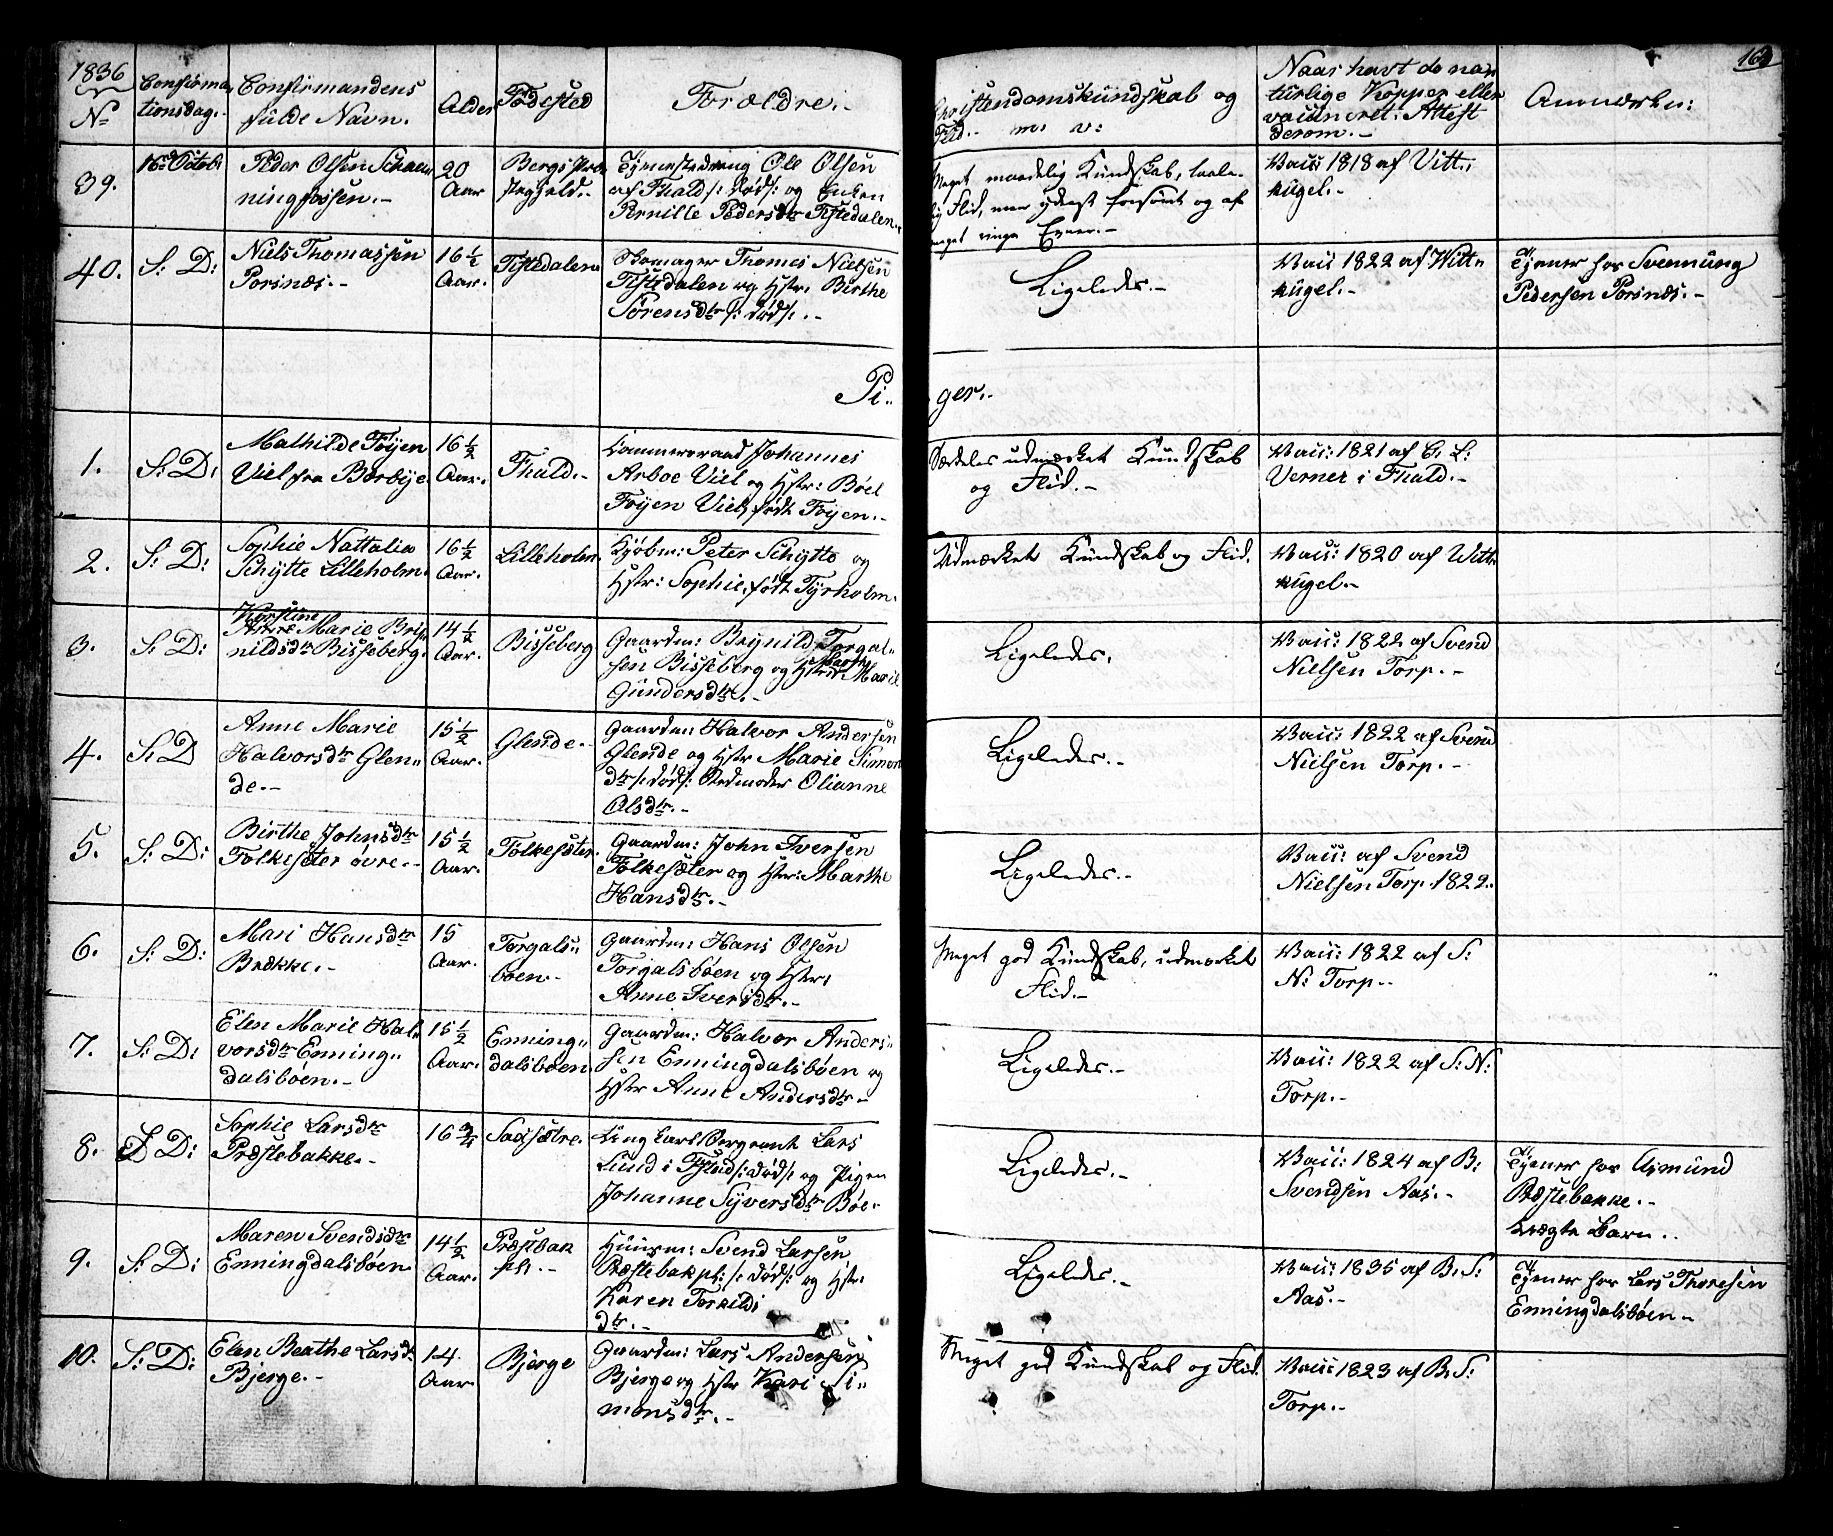 1836
No
Confirma
tionsdag.
Confirmandens
fulde Navn.
Alder
Fødested
Forældre.
Christendomskundskab og
Flid. m: v:
Naar havt de na
turlige Kopper eller
vaccineret: Attest
derom.
Anmærkn:
39.
16de Octob
Peder Olsen
ningfossen.
20
Aar
Bergs Præ
stegjeld.
Ole Olsen
af Fhald /: død :/ og Enken
Pernille Pedersdtr Tistedalen
Meget maadelig Kundskab, taale
lig Flid, men yderst forsømt og af
meget ringe Evner.
Vacc: 1818 af Vitt
kugel.
40.
S: D:
Niels Thomassen
Porsnæs.
16 1/2
Aar.
Tistedalen
Skomager Thomes Nielsen
Tistedalen og Hstr: Birthe
Sørensdtr /: død :/
Ligeledes.
Vacc 1822 af Witt
kugel.
Tjener hos Svennung
Pedersen Porsnæs.
Pi
ger.
1.
S: D:
Mathilde Føyen
Viel fra Børbye
16 1/2
Aar.
Fhald.
Cammerraad Johannes
Arboe Viel og Hstr: Böel
Føyen Viel, født Føyen.
Særdeles udmærket Kundskab
og Flid.
Vacc: 1821 af C. L:
Verner i Fhald.
2.
S: D:
Sophie Nattalia
Schytte Lilleholm.
16 1/2
Aar.
Lilleholm
Kjøbm: Peter Schytte og
Hstr: Sophie, født Tyrholm.
Udmærket Kundskab og Flid.
Vacc: 1820 af Witt
kugel.
3.
S: D:
Kirstine
Marie Bryn
nildsdtr Bisseberg.
14 1/2
Aar.
Bisseberg
Gaardm: Brynild Torgal
sen Bisseberg og Hstr: Marie
Gundersdtr.
Ligeledes.
Vacc: 1822 af Svend
Nielsen Torp.
4.
S: D
Anne Marie
Halvorsdtr Glen
de.
15 1/2
Aar.
Glende.
Gaardm: Halvor Andersen
Glende og Hstr Marie Simons
dtr /: død :/ Stedmoder Olianne
Olsdtr.
Ligeledes.
Vacc: 1822 af Svend
Nielsen Torp.
5.
S: D:
Birthe Johnsdtr
Folkesæter øvre.
15 1/2
Aar.
Folkesæter.
Gaardm: John Iversen
Folkesæter og Hstr: Marthe
Hansdtr.
Ligeledes.
Vacc: af Svend
Nielsen Torp. 1822.
6.
S: D:
Mari Hansdtr
Brække.
15
Aar.
Torgals
böen.
Gaardm: Hans Olsen
Torgalsböen og Hstr:
Anne Iversdtr.
Meget god Kundskab, udmærket
Flid.
Vacc: 1822 af S:
N: Torp.
7.
S: D:
Elen Marie Hal
vorsdtr Enning
dalsböen.
15 1/2
Aar.
Enning
dalsböen
Gaardm: Halvor Anders
sen Enningdalsböen og
Hstr Anne Andersdtr
Ligeledes.
Vacc: 1822 af S: N:
Torp.
8.
S D:
Sophie Larsdtr
Præstebakke.
16 3/4
Saxsætre.
Lars
Lund i Fhald /: død :/ og Pigen
Johanne Syversdtr Böe.
Ligeledes.
Vacc: 1824 af B:
Svendsen Aas.
Tjener hos Asmund
Præstebakke.
uægte Barn.
9.
S: D:
Maren Svendsdtr
Enningdalsböen
14 1/2
Aar.
Præstbak
pl.
Huusm: Svend Larsen
Præstebak pl: /: død :/ og Hstr:
Karen Torkilds
dtr.
Ligeledes.
Vacc: 1835 af B. S:
Aas.
Tjener hos Lars Thoresen
Enningdalsböen
10.
S: D:
Elen Beathe Larsdtr
Bjerge.
14
Aar.
Bjerge
Gaardm: Lars Andersen
Bjerge og Hstr Kari Si
monsdtr.
Meget god Kundskab og Flid.
Vacc: 1823 af B. S:
Torp.